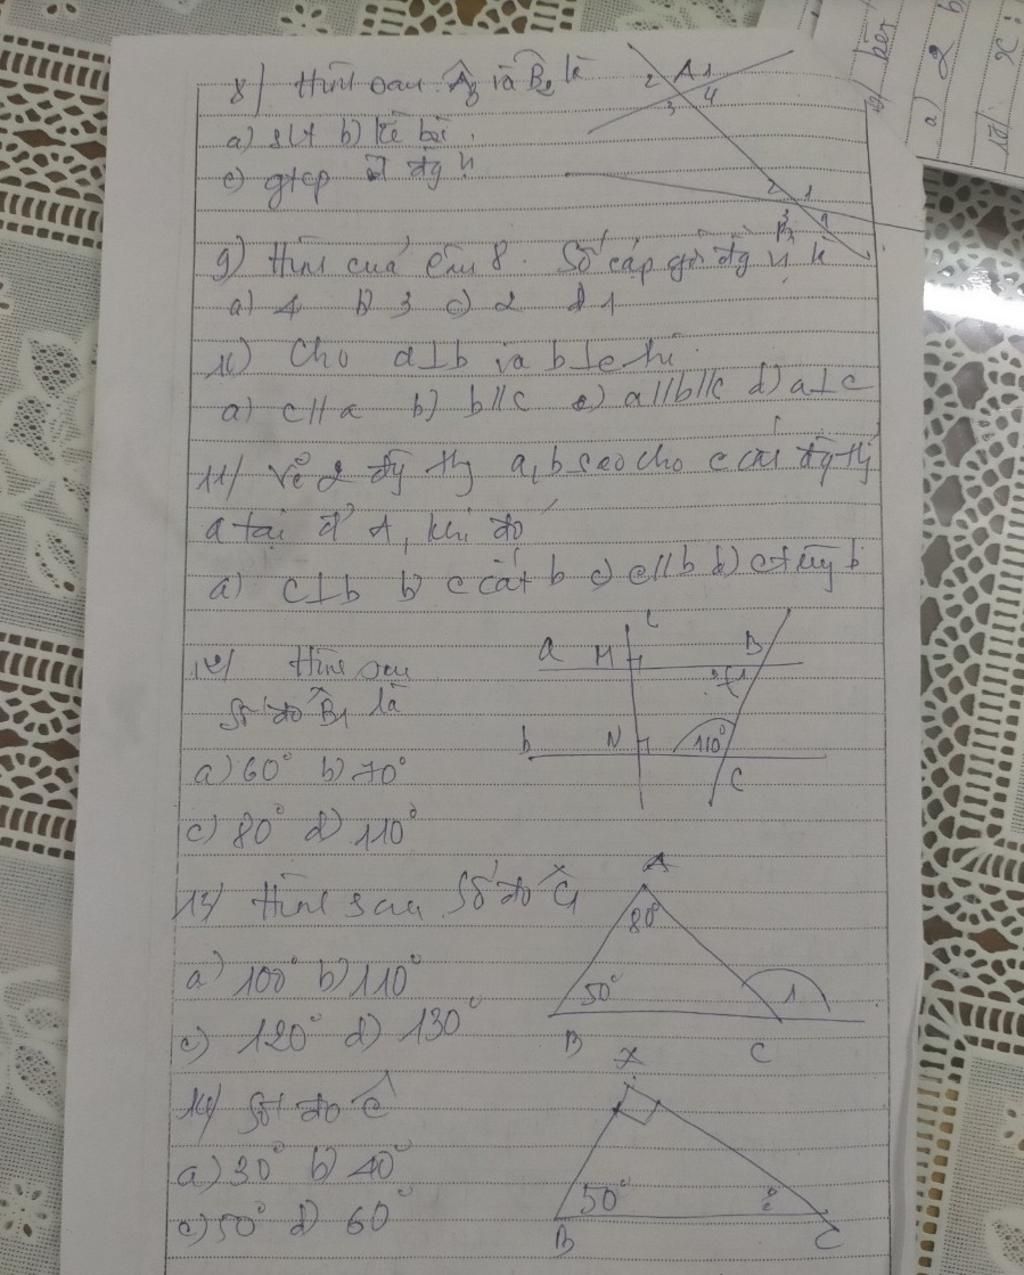 8) Hình sau Â3 và B̂2 là
a) slt b) kề bù
c) gtcp d đg vị
A 1
2
3 4
2 1
3
9) Hình của câu 8. Số cặp góc đg vị là
a) 4 b) 3 c) 2 d 1
10) Cho a⊥b và b⊥c thì
a) c//a b) b//c c) a//b//c d) a⊥c
11) Vẽ 2 đg thg a, b sao cho c cắt đg thg
a tại đ' A, khi đó
a) c⊥b b) c cắt b c) c//b d) c trùng b
12) Hình sau
a M B
số đo B̂1 là
b N 110° C
a) 60° b) 70°
c) 80° d) 110°
13) Hình sau số đo Ĉ1
A
80°
50° 1
B C
a) 100° b) 110°
c) 120° d) 130°
14) Số đo Ĉ
a) 30° b) 40°
c) 50° d 60°
50° ?
B C
bên
a) 2
x